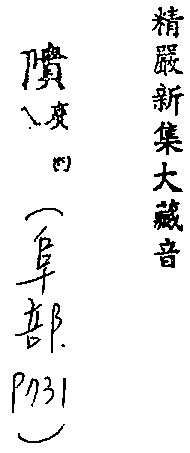 精嚴新集大藏音
隫
（阜部.
P731）